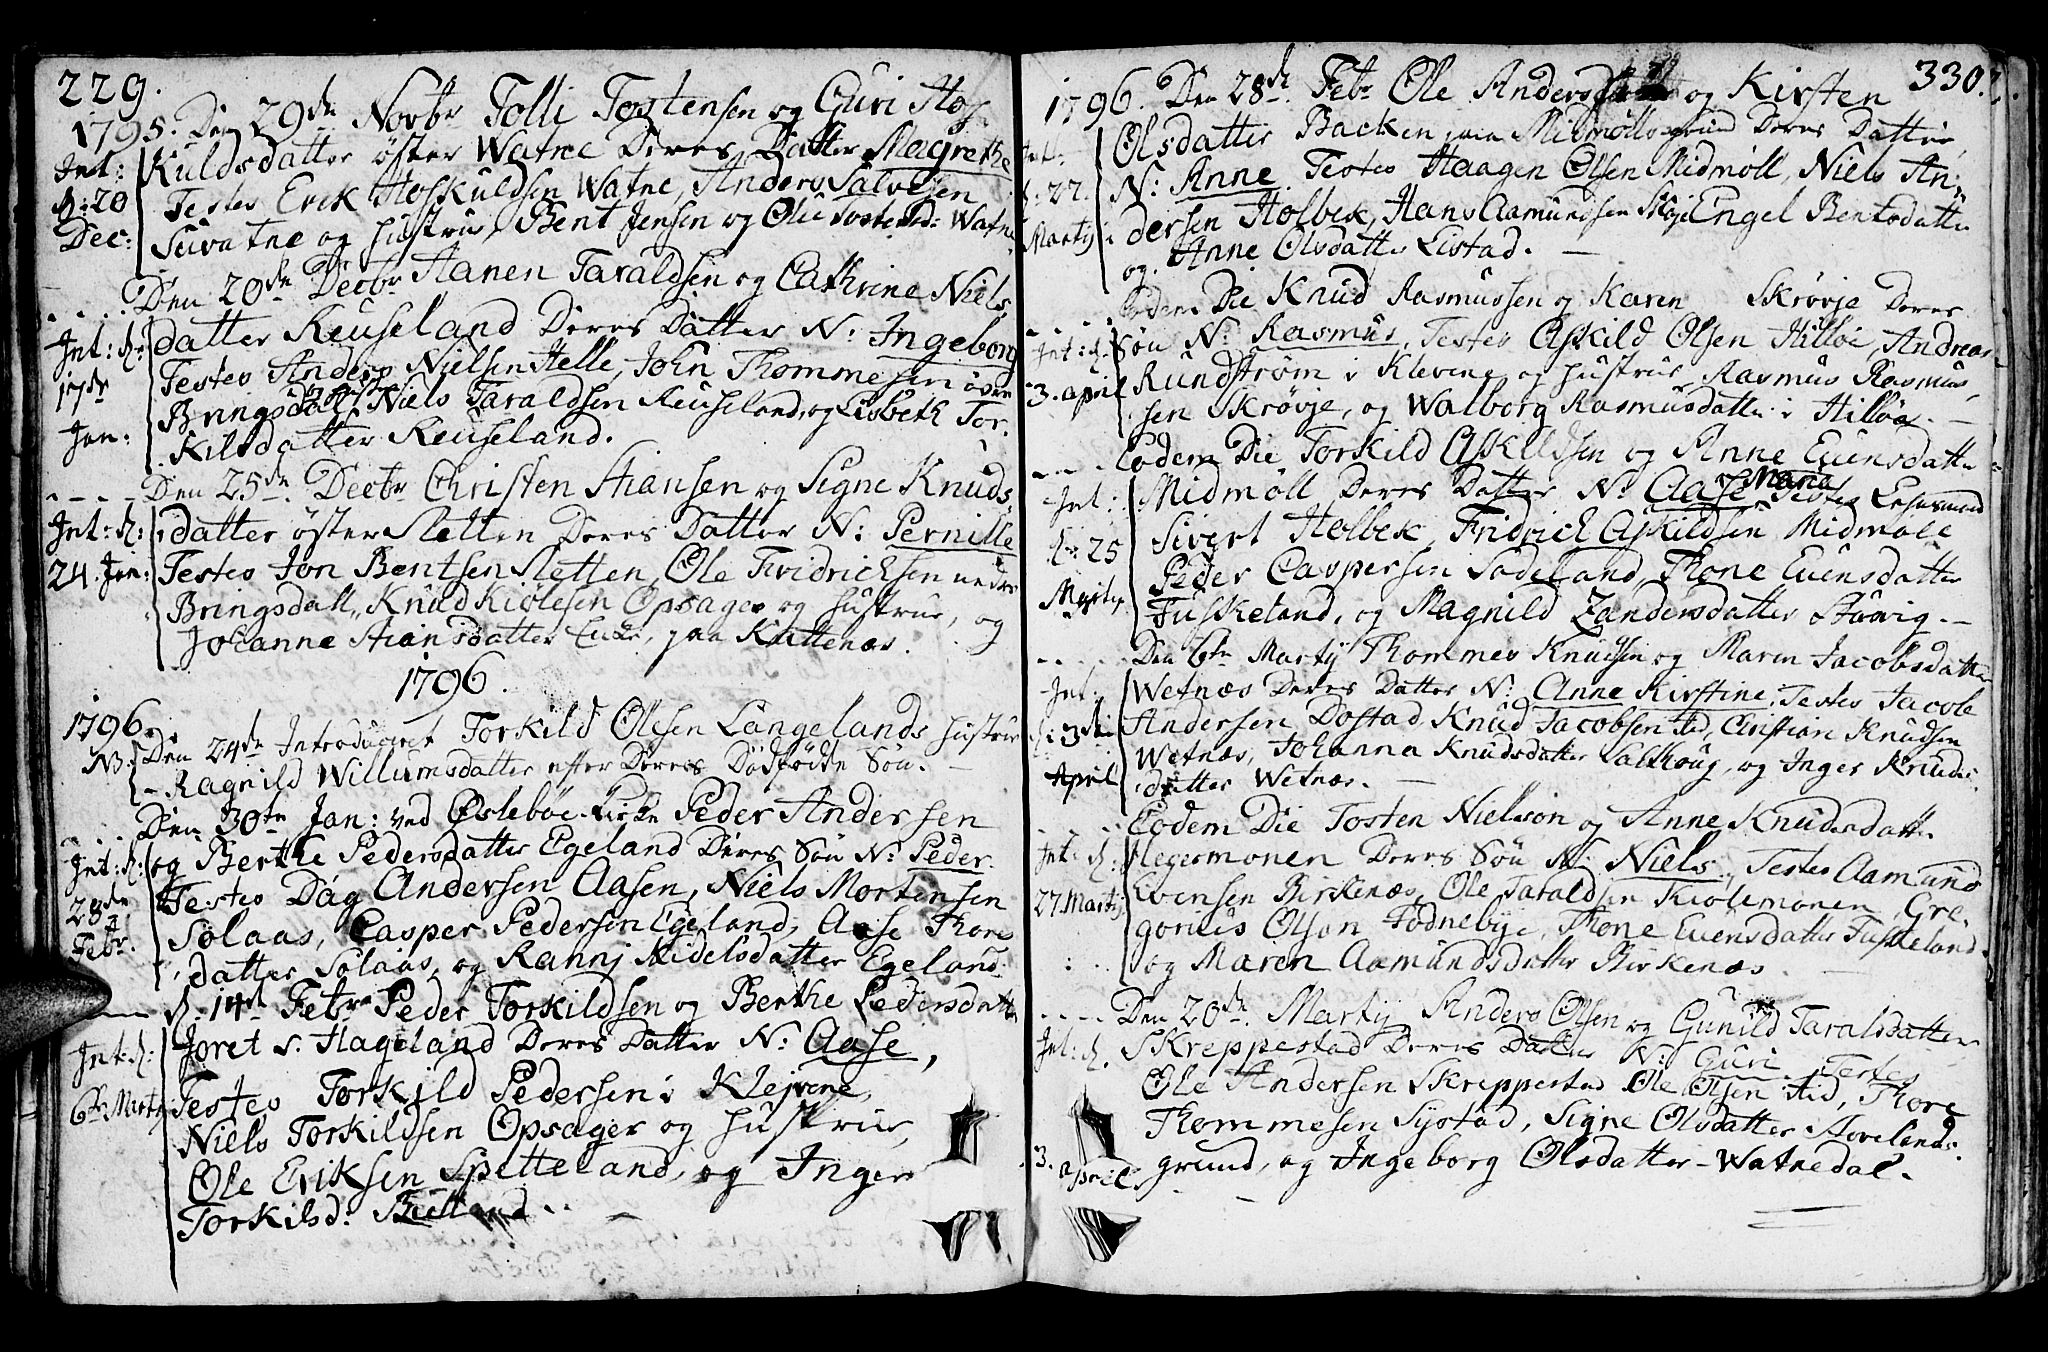 229.
1795. Den 29de Novbr Tolli Tostensen og Guri Hos
Int: Kuldsdatter öster Watne Deres Datter Magrethe
d: 20 Testes Erik Hoskuldsen Watne, Anders Salvesen
Dec: Suvatne og hustrue, Bent Jensen og Olli Tostensd: Watne
Den 20de Decbr Aanen Taraldsen og Cathrine Niels
Int: d: datter Reuseland Deres Datter N: Ingeborg
17de Testes Anders Nielsen Helle, John Thommesen över
Jan: Bringsdall Niels Taraldsen Reuseland, og Lisbeth Tor-
Kilsdatter Reuseland.
Den 25de Decbr Christen Stiansen og Signe Knuds
Int: d: datter öster Sletten Deres Datter N: Pernille
24. Jan: Testes Jon Bentsen Sletten, Ole Fridrichsen nedre
Bringsdall, Knud Kiölesen Opsager og hustrue, og
Johanne Stiansdatter, paa Kattenæs.
1796.
1796. Den 24de Introduceret Torkild Olsen Langelands hustrue
NB: Ragnild Willumsdatter efter Deres Dödfödte Sön. -
Den 30te Jan: ved Ösleböe Kirke Peder Andersen
Int: d: og Berthe Pedersdatter Egeland Deres Sön N: Peder
28de Testes Dag Andersen Aasen, Niels Mortensen
Febr. Solaas, Casper Pedersen Egeland, Aase Thores
datter Solaas, og Rannj Nidelsdatter Egeland
d. 14de Febr Peder Torkildsen og Berthe Pedersdatter
Int: d: Joret s. Hageland Deres Datter N: Aase,
6te Marty Testes Torkild Pedersen i Klejvene,
Niels Torkildsen Opsager og hustrue,
Ole Eriksen Spetteland, og Inger
Torkilsd:
330.
1796. Den 28de Febr Ole Anders og Kirsten
Int: Olsdatter Backen paa Midmölls-grund Deres Datter,
d: 27. N: Anne. Testes Haagen Olsen Midmöll, Niels An-
Marty dersen Holbek, Hans Aamundsen Sköje Engel Bentsdatter
og Anne Olsdatter Eistad. -
Eodem Die Knud Rasmussen og Karen Skrövje Deres
Int: d. Sön N: Rasmus, Testes Askild Olsen Hillöe, Andreas
3. april Rundström i Klevene og hustrue, Rasmus Rasmus
sen Skrövje, og Walborg Rasmusdatter i Hillöe. -
Eodem Die Torkild Askildsen og Anne Evensdatter
Int: Midmöll Deres Datter N: Aase Maria Testes
d: 25 Sivert Holbek, Fridrich Askildsen Midmöll
Marty Peder Caspersen Sodeland, Thone Evensdatter
Fuskeland, og Magnild Zandersdatter Störvig. -
Den 6te Marty Thommes Knudsen og Maren Jacobsdatter
Int: Wetnæs Deres Datter N: Anne Kirstine, Testes Jacob
d: 3de Andersen Döstad, Knud Jacobsen ibid, Christian Knudsen
April Wetnæs, Johanna Knudsdatter Valhöug, og Inger Knuds-
datter Wetnæs. -
Eodem Die Tosten Nielsön og Anne Knudsdatter
Int: d: Hegermonen Deres Sön N: Niels, Testes Aamund
27 Marty Evensen Birkenæs, Ole Taraldsen Kiölemonen, Gre-
gorius Olson Fodnebye, Thone Evensdatter Fuskeland
og Maren Aamundsdatter Birkenæs.
Den 20de Marty Anders Olsen og Gunild Taralsdatter
Int: d. Skreppestad Deres Datter N: Guri, Testes
Ole Andersen Skreppestad Ole Olsen ibid, Thore
Thommesen Systad, Signe Olsdatter Stoveland-
3. april. grund, og Ingeborg Olsdatter Watnedal.